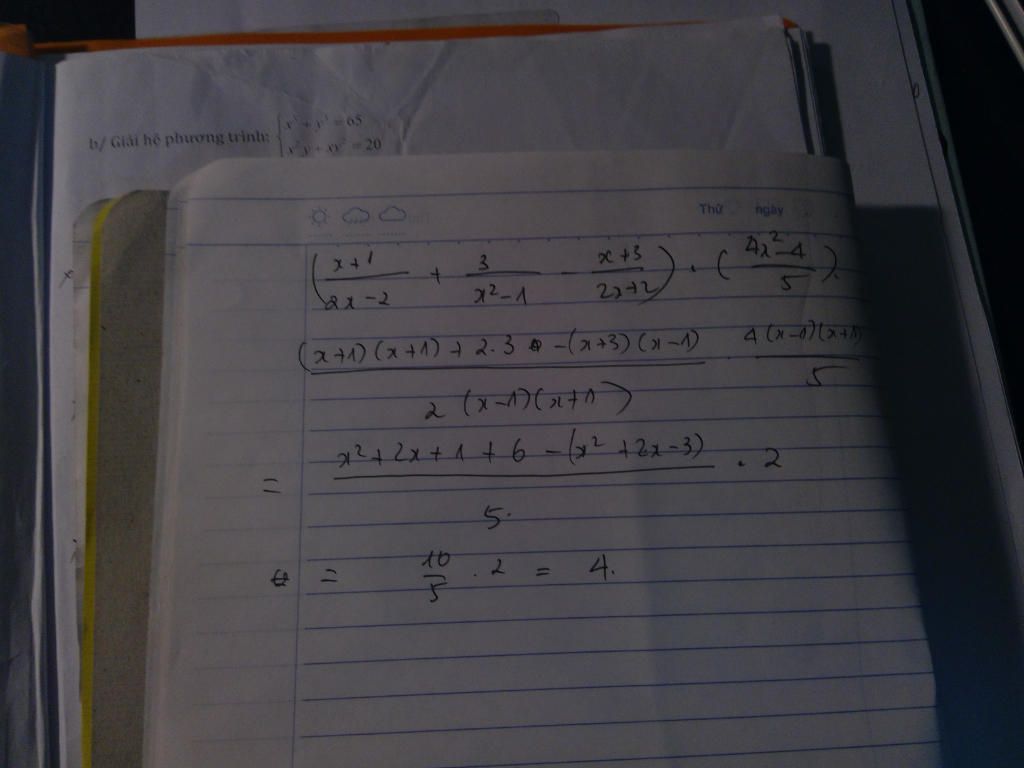 b/ Giải hệ phương trình: { x³ + y³ = 65
x²y + xy² = 20
Thứ ngày
( (x+1)/(2x-2) + 3/(x²-1) - (x+3)/(2x+2) ) . ( (4x²-4)/5 ).
( ((x+1)(x+1) + 2.3 -(x+3)(x-1)) / (2(x-1)(x+1)) ) 4(x-1)(x+1)/5
= (x²+2x+1+6-(x²+2x-3))/5 . 2
= 10/5 . 2 = 4.